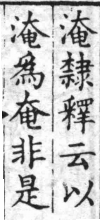 淹隸釋云以
淹爲奄非是